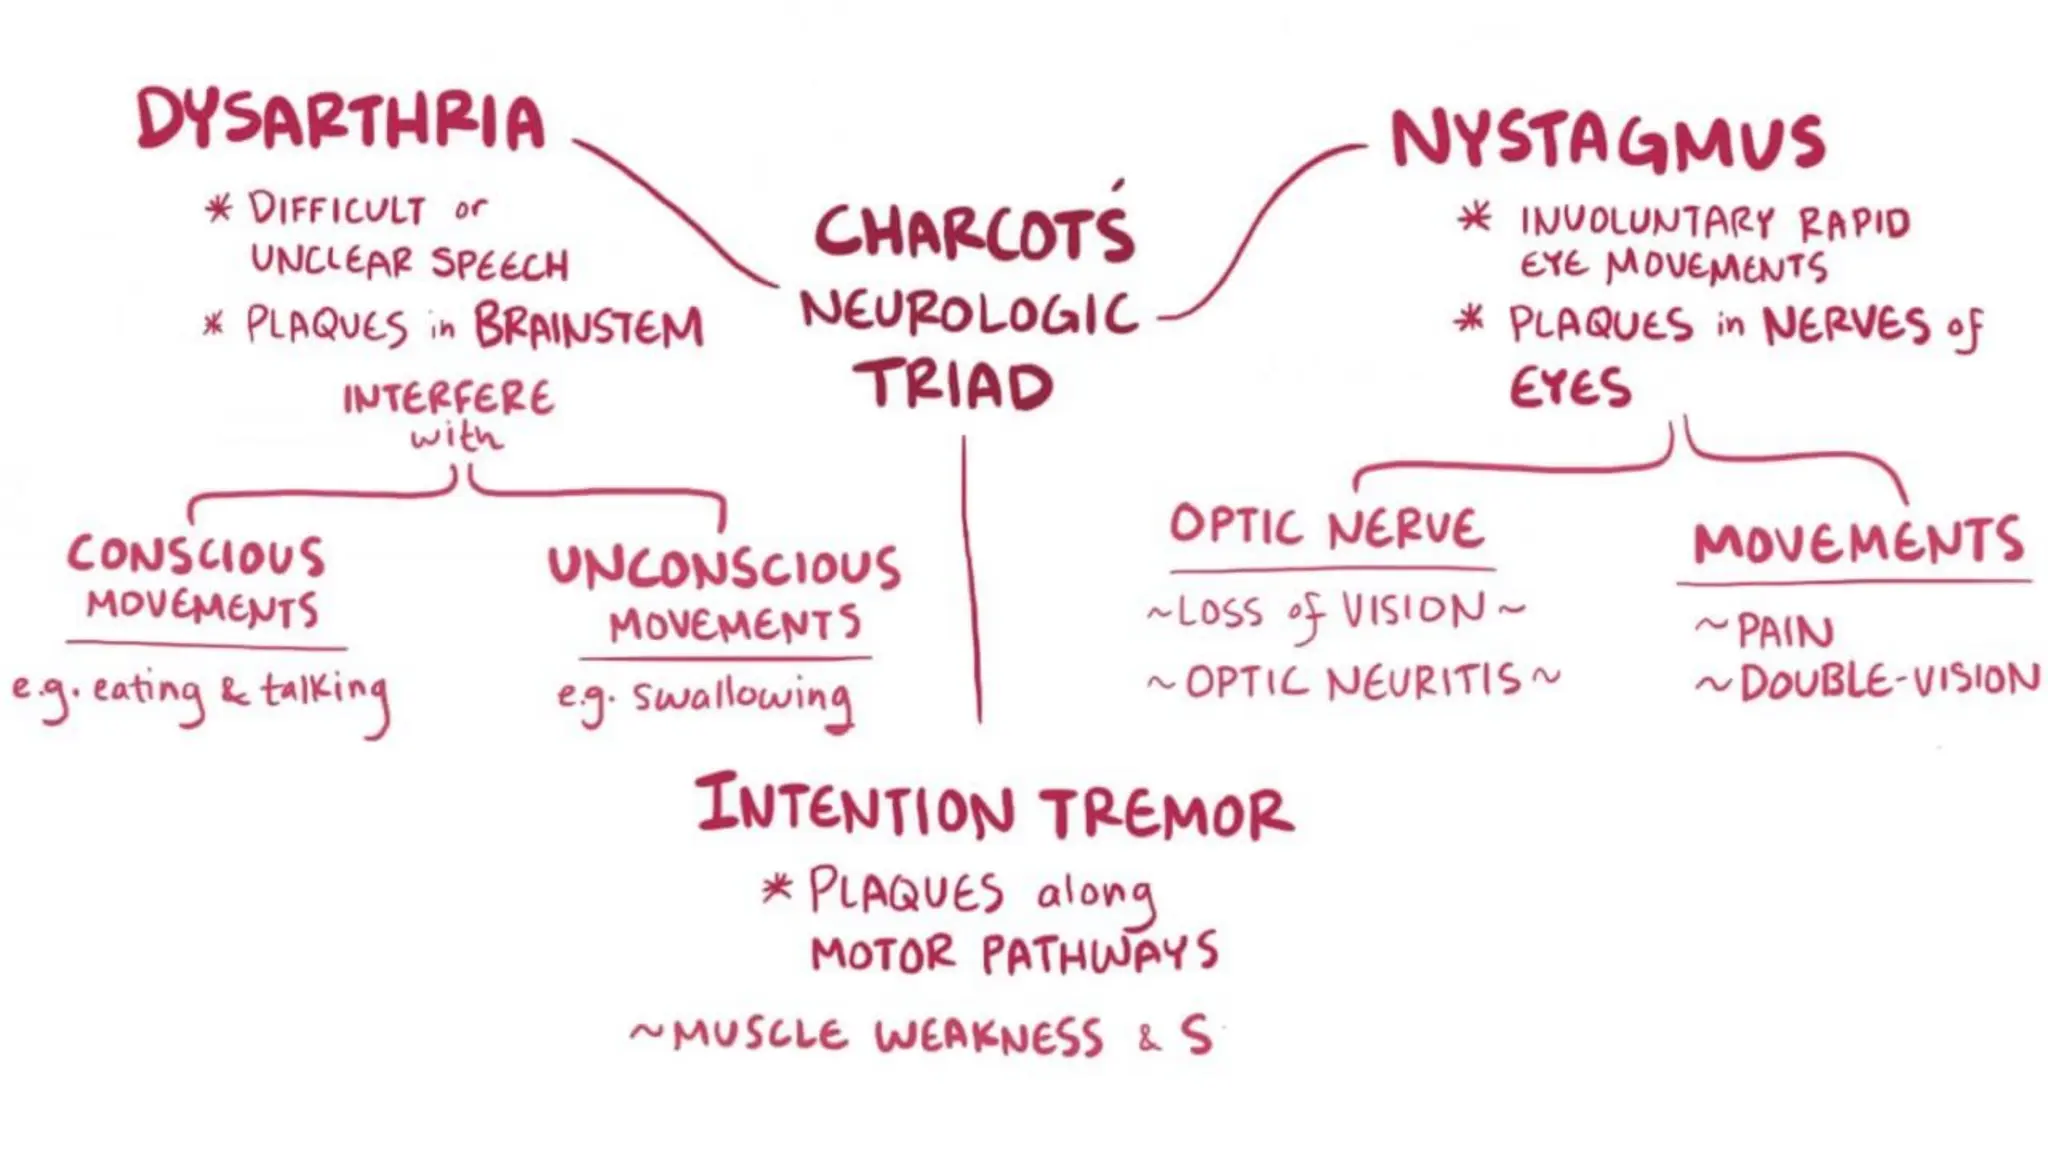 DYSARTHRIA
* DIFFICULT or
UNCLEAR SPEECH
* PLAQUES in BRAINSTEM
INTERFERE
with
CONSCIOUS
MOVEMENTS
e.g. eating & talking
UNCONSCIOUS
MOVEMENTS
e.g. swallowing
CHARCOT'S
NEUROLOGIC
TRIAD
NYSTAGMUS
* INVOLUNTARY RAPID
EYE MOVEMENTS
* PLAQUES in NERVES of
EYES
OPTIC NERVE
~LOSS of VISION~
~OPTIC NEURITIS~
MOVEMENTS
~PAIN
~DOUBLE-VISION
INTENTION TREMOR
* PLAQUES along
MOTOR PATHWAYS
~MUSCLE WEAKNESS & S